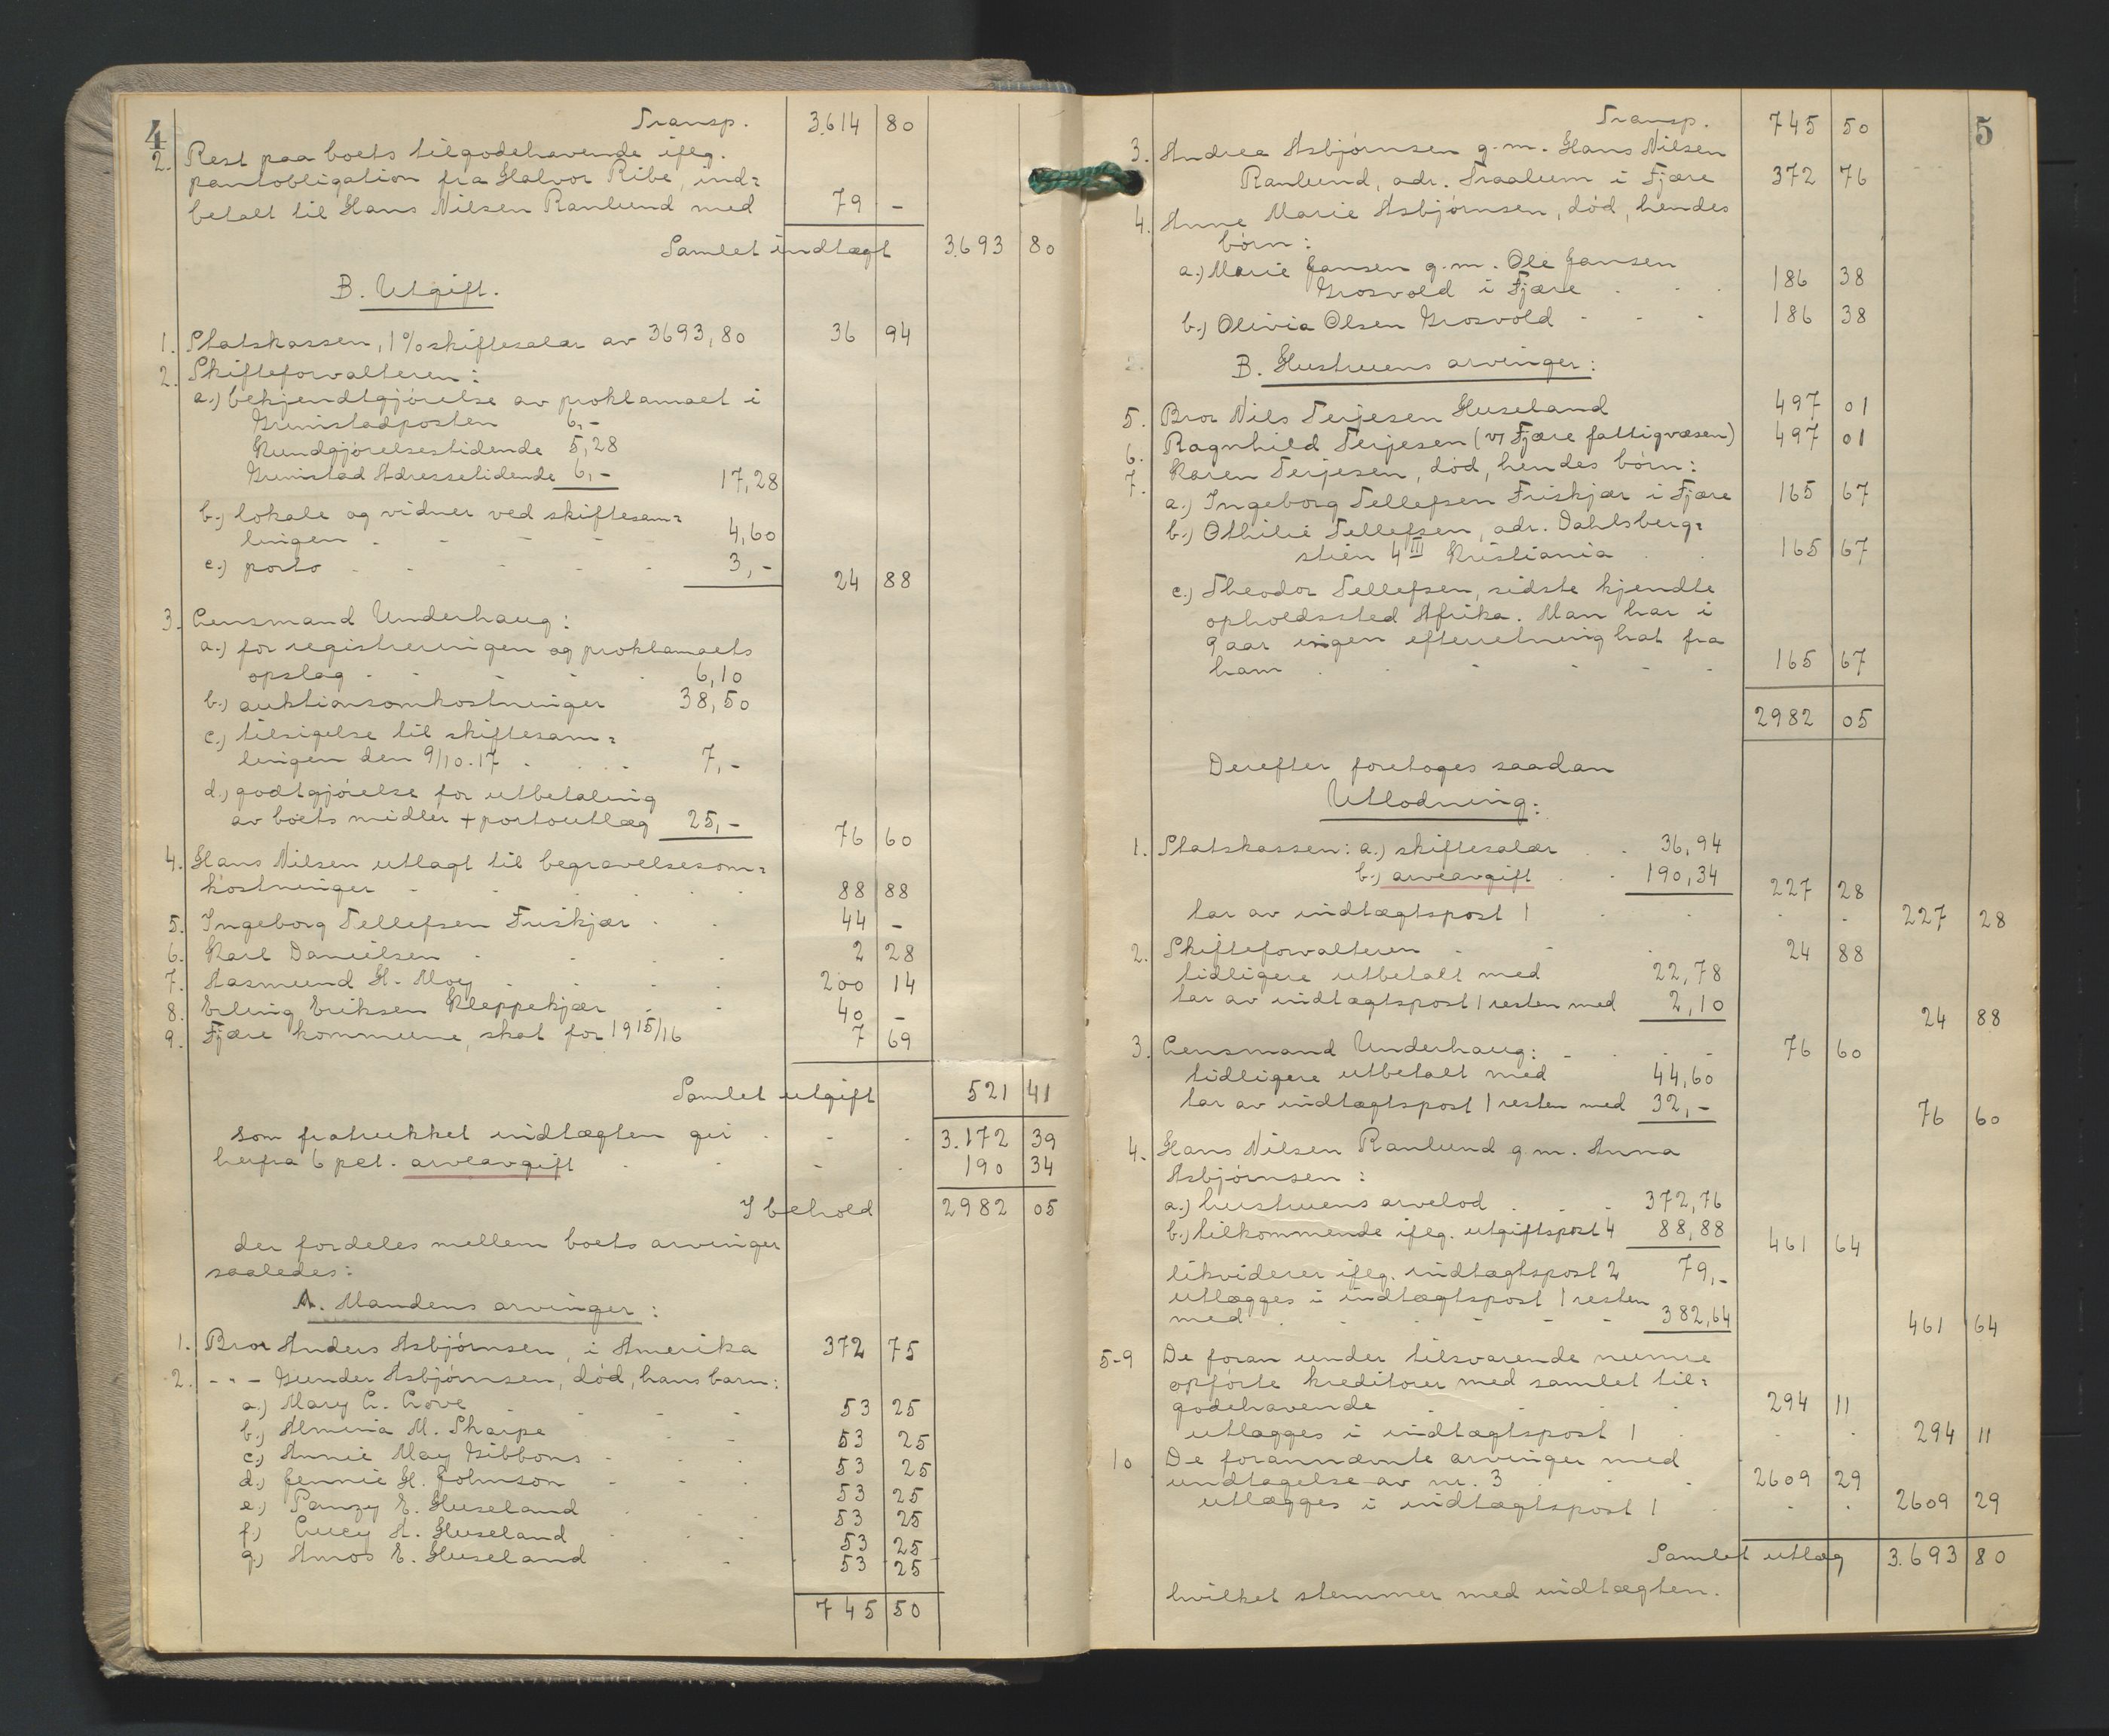 4
Transp. 3.614 80
2. Rest paa boets tilgodehavende ifлg.
pantobligation fra Halvor Ribe, ind=
betalt til Hans Nilsen Ranlund med 79 -
Samlet indtægt 3.693 80
B. Utgift.
1. Statskassen, 1% skiftesalær av 3693,80 36 94
2. Skifteforvalteren:
a.) bekjendtgjørelse av proklamaet i
Grimstadposten 6,-
Kundgjørelsestidende 5,28
Grimstad Adressetidende 6,- 17,28
b.) lokale og vidner ved skiftesam=
lingen . - - - 4,60
c.) porto . - - - 3,- 24 88
3. Lensmand Underhaug:
a.) for registreringen og proklamaets
opslag . - - . 6,10
b.) auktionsomkostninger 38,50
c.) tilsigelse til skiftesam=
lingen den 9/10.17 . . . . 7,-
d.) godtgjørelse for utbetaling
av boets midler + portoutlæg 25,- 76 60
4. Hans Nilsen utlagt til begravelsesom=
kostninger - - . . . 88 88
5. Ingeborg Tellefsen Friskjær . . 44 -
6. Karl Danielsen . . . . 2 28
7. Aasmund H. Moy . . . . 200 14
8. Erling Eriksen Kleppekjær . . 40 -
9. Fjære kommune, skat for 1915/16 7 69
Samlet utgift 521 41
som fratrukket indtægten gir . - . 3.172 39
herfra 6 pct. arveavgift . - . 190 34
I behold 2982 05
der fordeles mellem boets arvinger
saaledes:
A. Mandens arvinger:
1. Bror Anders Asbjørnsen, i Amerika 372 75
2. - " - Gunder Asbjørnsen, død, hans barn:
a.) Mary C. Crove . - - - 53 25
b.) Almina M. Sharpe - - 53 25
c.) Annie May Gibbons . . . 53 25
d.) Jennie H. Johnson - - . 53 25
e.) Panzy E. Huseland . . . 53 25
f.) Lucy A. Huseland . . . 53 25
g.) Amos E. Huseland . - 53 25
745 50
5
Transp. 745 50
3. Andrea Asbjørnsen g.m. Hans Nilsen
Ranlund, adr. Traalum i Fjære 372 76
4. Anne Marie Asbjørnsen, død, hendes
børn:
a.) Marie Jansen g.m. Ole Jansen
Grosvold i Fjære . . . 186 38
b.) Olivia Olsen Grosvold - - - 186 38
B. Hustruens arvinger:
5. Bror Nils Terjesen Huseland 497 01
6. Ragnhild Terjesen (v/ Fjære fattigvæsen) 497 01
7. Karen Terjesen, død, hendes børn:
a.) Ingeborg Tellefsen Friskjær i Fjære 165 67
b.) Othilie Tellefsen, adr. Dahlsberg=
stien 4 III Kristiania . . 165 67
c.) Theodor Tellefsen, sidste kjendte
opholdssted Afrika. Man har i
9 aar ingen efterretning hat fra
ham . - - - - 165 67
2982 05
Derefter foretoges saadan
Utlodning:
1. Statskassen: a.) skiftesalær . . 36,94
b.) arveavgift . . 190,34 227 28
tar av indtægtspost 1 . . . . 227 28
2. Skifteforvalteren . - . 24 88
tidligere utbetalt med 22,78
tar av indtægtspost 1 resten med 2,10
24 88
3. Lensmand Underhaug: - . - - 76 60
tidligere utbetalt med 44,60
tar av indtægtspost 1 resten med 32,-
76 60
4. Hans Nilsen Ranlund g.m. Anna
Asbjørnsen:
a.) hustruens arvelod . . . 372,76
b.) tilkommende ifлg. utgiftspost 4 88,88 461 64
likviderer ifлg. indtægtspost 2 79,-
utlægges i indtægtspost 1 resten
med . . . - - - 382,64 461 64
5-9 De foran under tilsvarende numre
opførte kreditorer med samlet til=
godehavende . . . . 294 11
utlægges i indtægtspost 1 . . . 294 11
10 De forannævnte arvinger med
undtagelse av nr. 3 . . . 2609 29
utlægges i indtægtspost 1 . . . 2609 29
Samlet utlæg 3.693 80
hvilket stemmer med indtægten.